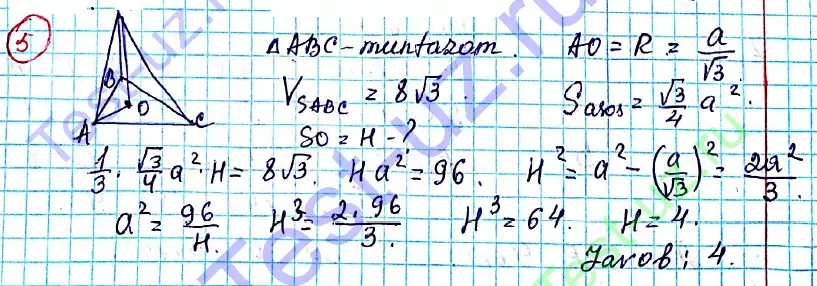 5 ΔABC - muntazam. AO = R = a/√3
V_SABC = 8√3. S_asos = √3/4 a².
SO = H - ?
A B C O
1/3 · √3/4 a² · H = 8√3. Ha² = 96. H² = a² - (a/√3)² = 2a²/3.
a² = 96/H. H³ = 2·96/3. H³ = 64. H = 4.
Javob: 4.
Test-uz.ru